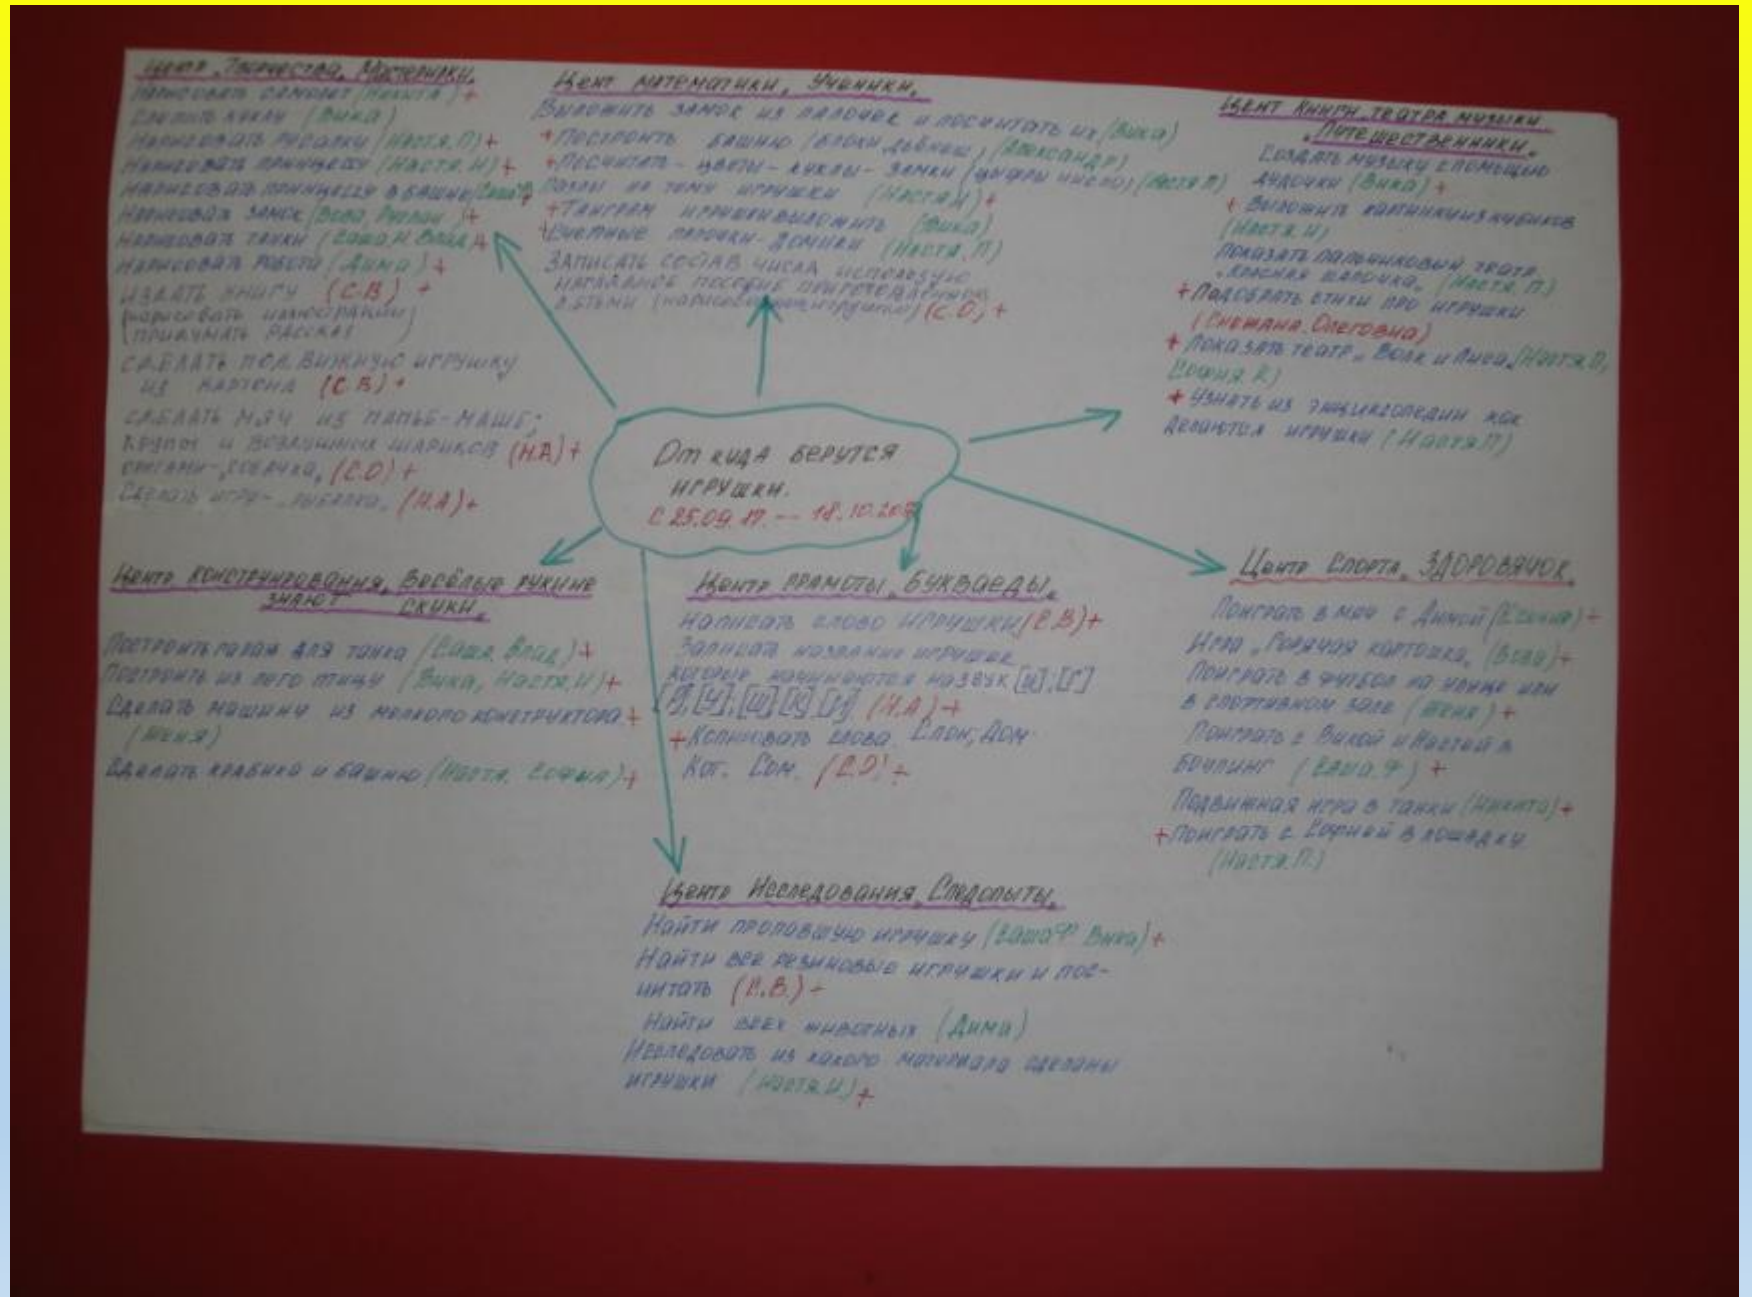 Центр „Творчества„ Мастерилки„
Нарисовать самолёт (Никита) +
Слепить куклу (Вика)
Нарисовать русалку (Настя.П) +
Нарисовать принцессу (Настя.И) +
Нарисовать принцессу в башне (Саша Ф) +
Нарисовать замок (Вова, Руслан) +
Нарисовать танки (Саша.И. Влад) +
Нарисовать робота (Дима) +
Издать книгу (С.В) +
(нарисовать иллюстрации,
придумать рассказ)
Сделать подвижную игрушку
из картона (С.В) +
Сделать мяч из папье-маше;
крупы и воздушных шариков (Н.А) +
оригами-„собачка„ (С.О) +
Сделать игру-„рыбалка„ (Н.А) +
Цент математики„ Ученики„
Выложить замок из палочек и посчитать их (Вика)
+ Построить башню (блоки Дьенеш) (Александр)
+ Посчитать - цветы - куклы - замки (цифры число) (Настя П)
Пазлы на тему игрушки (Настя И) +
+ Танграм игрушки выложить (Вика)
+ Счетные палочки - домики (Настя.П)
Записать состав числа используя
наглядное пособие приготовленное
детьми (игрушки) (С.О.) +
Цент книги„ театра„ музыки„
„Путешественники„
Создать музыку с помощью
дудочки (Вика) +
+ Выложить картинки из кубиков
(Настя.И)
Показать пальчиковый театр
„Красная шапочка„ (Настя. П.)
+ Подобрать стихи про игрушки
(Снежана. Олеговна)
+ Показать театр „Волк и Лиса„ (Настя.П,
София.К)
+ Узнать из энциклопедии как
делаются игрушки (Настя П)
От куда берутся
игрушки.
с 25.09.17. -- 18.10.2017
Центр конструирования„ Весёлые руки не
знают скуки„
Построить гараж для танка (Саша. Влад) +
Построить из лего птицу (Вика, Настя.И) +
Сделать машину из мелкого конструктора +
(Женя)
Сделать кробика и башню (Настя. София) +
Центр грамоты„ Буквоеды„
Написать слово игрушки (С.В) +
Записать название игрушек
которые начинаются на звук [и], [г]
[р], [у], [ш] [к] [и] (Н.А) +
+ Копировать слова Слон, Дом
Кот. Сом. (С.О) +
Центр Спорта„ Здоровячок„
Поиграть в мяч с Димой (София) +
Игра „Горячая картошка„ (Вова) +
Поиграть в футбол на улице или
в спортивном зале (Женя) +
Поиграть с Викой и Настей в
боулинг (Саша.Ф) +
Подвижная игра в танки (Никита) +
+ Поиграть с Софией в лошадку
(Настя.П.)
Центр Исследования„ Следопыты„
Найти пропавшую игрушку (Саша Ф Вика) +
Найти все резиновые игрушки и пос-
читать (С.В.) +
Найти всех животных (Дима)
Исследовать из какого материала сделаны
игрушки (Настя.И.) +